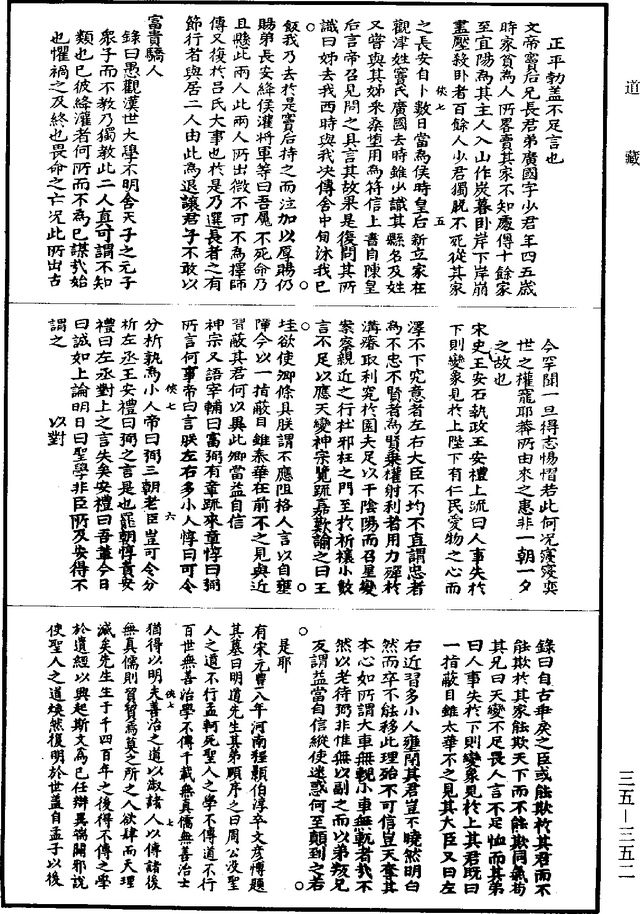 道藏
正平勃蓋不足言也
文帝竇后兄長君弟廣國字少君年四五歲
時家貧為人所畧賣其家不知處傳十餘家
至宜陽為其主人入山作炭暮卧岸下岸崩
盡壓殺卧者百餘人少君獨脫不死從其家
侠七 五
之長安自卜數日當為侯時皇后新立家在
觀津姓竇氏廣國去時雖少識其縣名及姓
又嘗與其姊采桑墮用為符信上書自陳皇
后言帝召見問之具言其故果是復問其所
識曰姊去我西時與我决傳舍中匄沐我已
飯我乃去於是竇后持之而泣加以厚賜仍
賜弟長安絳侯灌將軍等曰吾屬不死命乃
且懸此兩人此兩人所出微不可不為擇師
傅又復於呂氏大事也於是乃選長者之有
節行者與居二人由此為退讓君子不敢以
富貴驕人
錄曰愚觀漢世大學不明舍天子之元子
衆子而不教乃獨教此二人真可謂不知
類也已彼絳灌者何所而不為已謀哉始
也懼禍之及終也畏命之亡况此所出古
今罕聞一旦得志惕慴若此何况寖寖奕
世之權寵耶莽所由來之患非一朝一夕
之故也
宋史王安石執政王安禮上疏曰人事失於
下則變象見於上陛下有仁民愛物之心而
澤不下究意者左右大臣不均不直謂忠者
為不忠不賢者為賢乗權射利者用力殫於
溝瘠取利究於園夫足以干陰陽而召星變
案察親近之行杜邪枉之門至於祈禳小數
言不足以應天變神宗覽疏嘉歎諭之曰王
珪欲使卿條具朕謂不應阻格人言以自壅
障今以一指蔽目雖泰華在前不之見與近
習蔽其君何以異此卿當益自信
神宗又語宰輔曰富弼有章疏來章惇曰弼
所言何事帝曰言朕左右多小人惇曰可令
侠七 六
分析孰為小人帝曰弼三朝老臣豈可令分
析左丞王安禮曰弼之言是也罷朝惇責安
禮曰左丞對上之言失矣安禮曰吾輩今日
曰誠如上論明日曰聖學非臣所及安得不
謂之 以對
錄曰自古畢戾之臣或能欺於其君而不
能欺於其家能欺天下而不能欺同氣苟
其兄曰天變不足畏人言不足恤而其弟
曰人事失於下則變象見於上其君既曰
一指蔽目雖太華不之見其大臣又曰左
右近習多小人壅閉其君豈不曉然明白
然而卒不能移此理殆不可信豈天奪其
本心如所謂大車無輗小車無軏者哉不
然以老待弼非惟無以副之而以弟叛兄
友謂益當自信縱使迷惑何至顛到之若
是耶
有宋元豐八年河南程顥伯淳卒文彦博題
其墓曰明道先生其弟頤序之曰周公没聖
人之道不行孟軻死聖人之學不傳道不行
百世無善治學不傳千載無真儒無善治士
侠七 七
猶得以明夫善治之道以淑諸人以傳諸後
無真儒則貿貿焉莫之所之人欲肆而天理
滅矣先生生于千四百年之後得不傳之學
於遺經以興起斯文為己任辯異端闢邪說
使聖人之道煥然復明於世蓋自孟子以後
三五—三五二